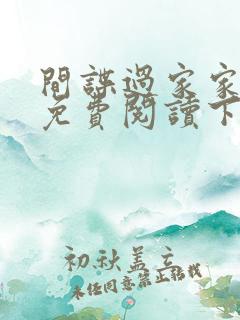 間諜過家家
免費閱讀下
初秋盖立
未经同意禁止转载